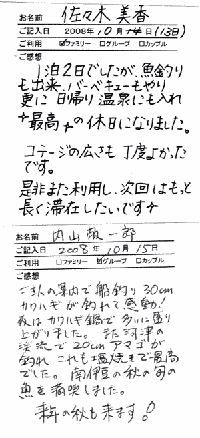 お名前 佐々木 美香
ご記入日 2008年 10月 14日 (13日)
ご利用 ☑ファミリー □グループ □カップル
ご感想
1泊2日でしたが、魚釣り
も出来、バーベキューもやり
更に 日帰り温泉にも入れ
+最高+の休日になりました。
コテージの広さも 丁度よかった
です。
是非また利用し、次回はもっと
長く滞在したいです+
お名前 内山 一郎
ご記入日 2008年 10月 15日
ご利用 □ファミリー ☑グループ □カップル
ご感想
ご主人の案内で 船釣り 30cm
カワハギが釣れて感動!
夜はカワハギ鍋で 大いに盛り
上がりました。 また河津の
渓流で 20cm アマゴが
釣れ これも塩焼きで最高
でした。 南伊豆の秋の旬の
魚を満喫しました。
来年の秋も来ます!